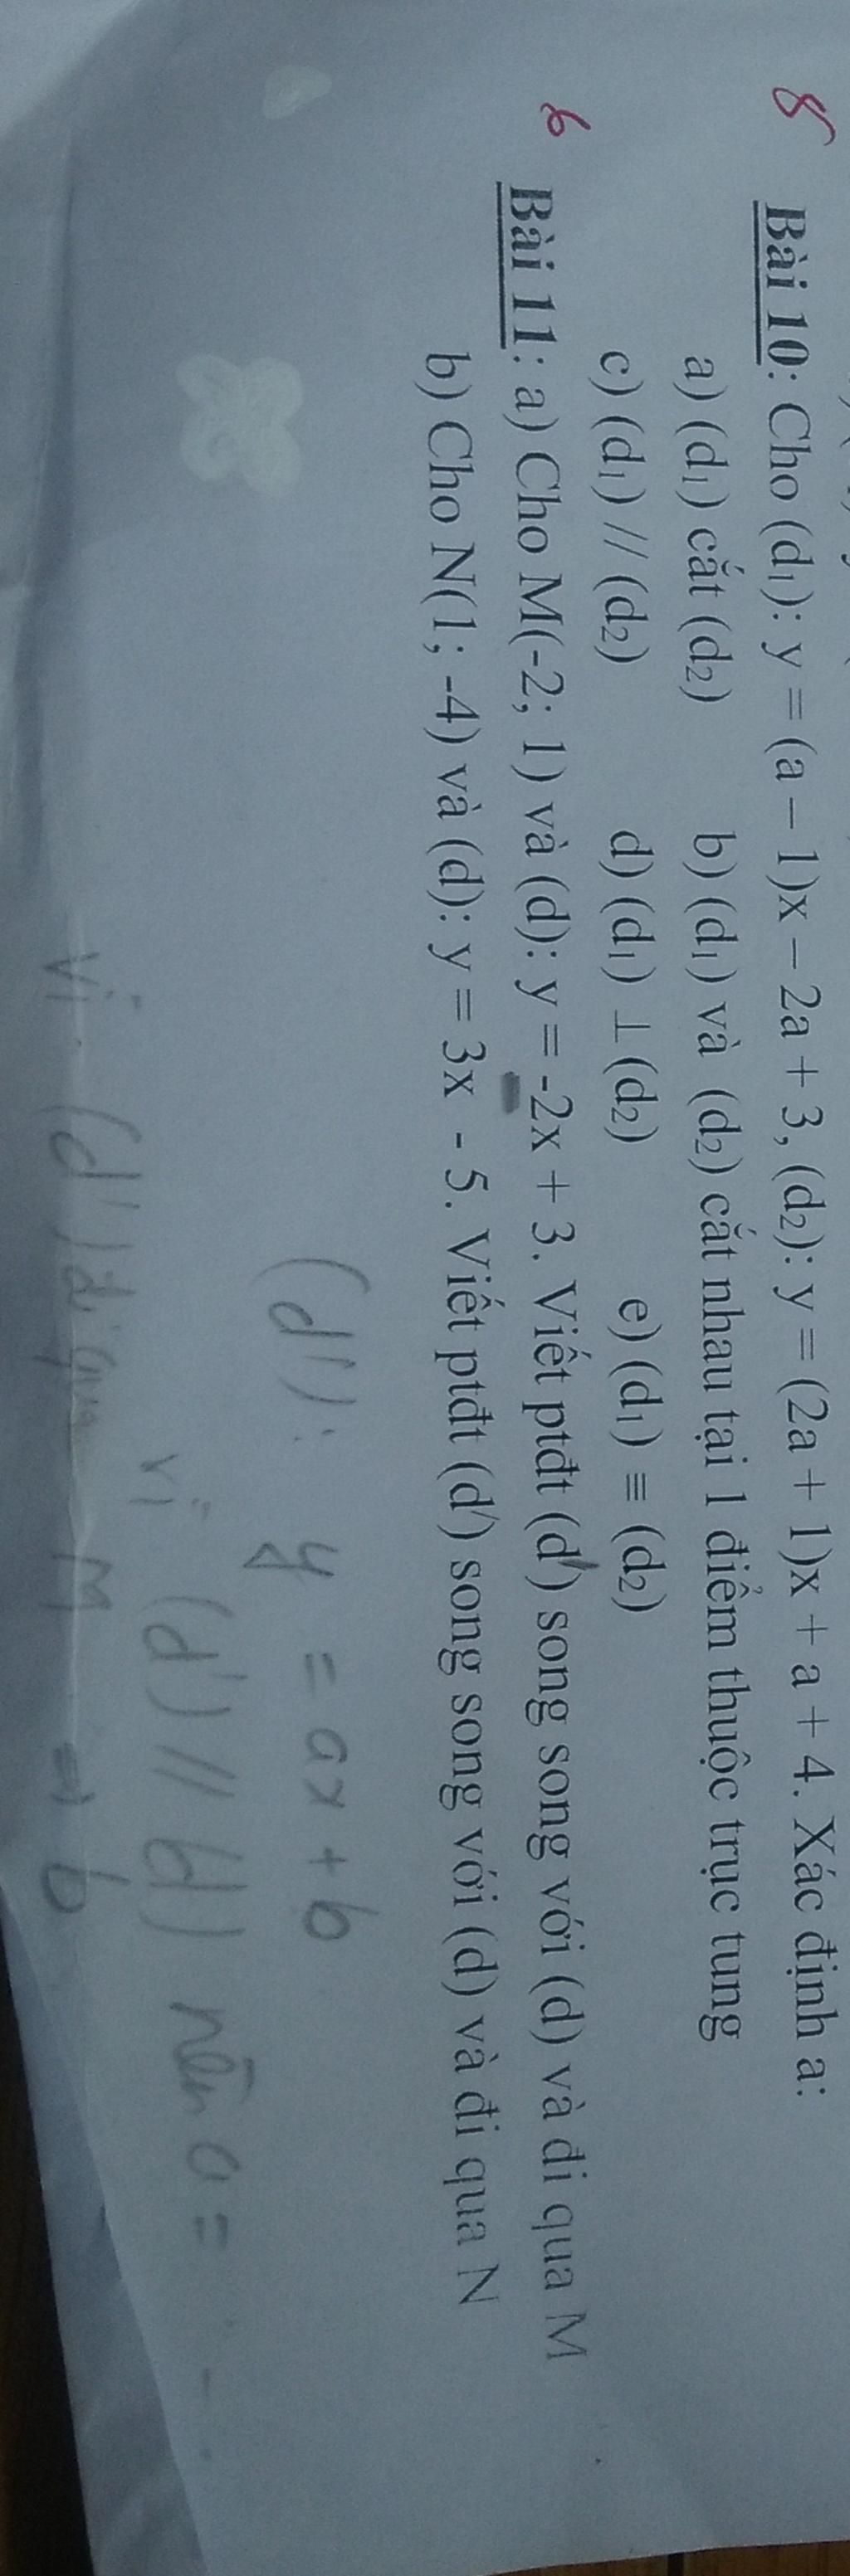 8
Bài 10: Cho (d₁): y = (a – 1)x – 2a + 3, (d₂): y = (2a + 1)x + a + 4. Xác định a:
a) (d₁) cắt (d₂) b) (d₁) và (d₂) cắt nhau tại 1 điểm thuộc trục tung
c) (d₁) // (d₂) d) (d₁) ⊥ (d₂) e) (d₁) ≡ (d₂)
6
Bài 11: a) Cho M(-2; 1) và (d): y = -2x + 3. Viết ptđt (d') song song với (d) và đi qua M
b) Cho N(1; -4) và (d): y = 3x - 5. Viết ptđt (d') song song với (d) và đi qua N
(d'): y = ax + b
vì (d') // (d) nên a = ...
vì (d') đi qua M ⇒ b